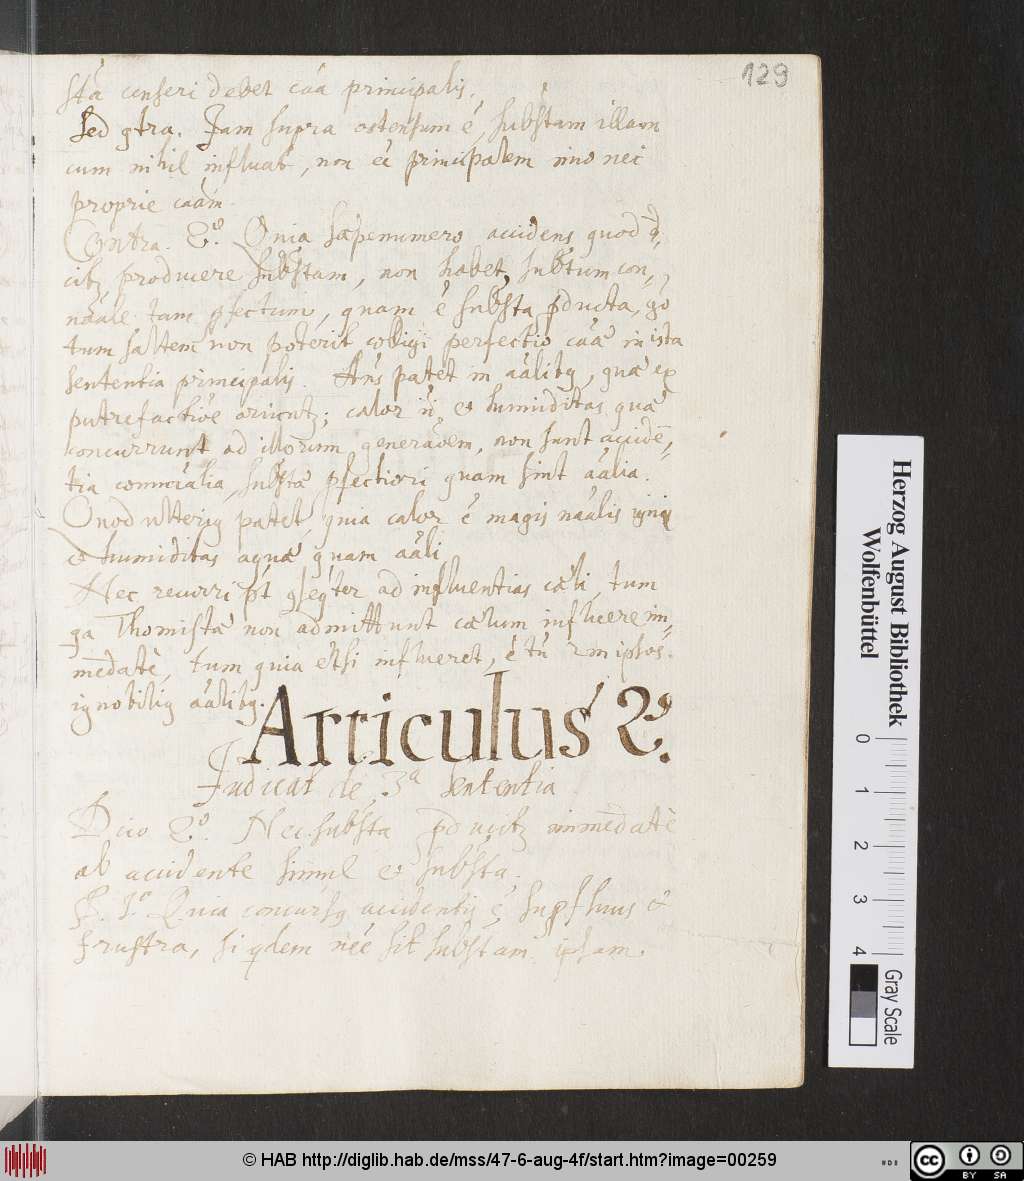 129
stã censeri debet cãa principalis.
Sed gtra. Jam supra ostensum ẽ, subs̃tam illam
cum nihil influat, non ẽẽ principalem imo nec
proprie cãam.
Contra. 2º. Quia sæpenumero accidens quod
producere subs̃tam, non habet, con=
nãale tam pfectum, quam ẽ subs̃ta pducta, gõ
tum saltem non poterit colligi perfectio cãæ in ista
sententia principalis. Añs patet in aãlibꝫ, quæ ex
putrefactiõe oriuntꝫ; calor ñ, et humiditas quæ
concurrunt ad illorum generãõem, non sunt accidẽ=
tia connãalia, subs̃tæ pfectiori quam sint aãlia.
Quod ulteriꝰ patet, quia calor ẽ magis nãalis igni
et humiditas aquæ quam aãli
Nec recurri pt ad influentias cæli, tum
qa Thomistæ non admittunt cælum influere im=
mediatè, tum quia etsi influeret, ẽ tñ ipsos
ignobiliꝰ aãlibꝫ.
Articulus 2º.
Judicat de 3ª sententia
Dico 2º. Nec subs̃ta pducitꝫ immediatè
ab accidente simul et subs̃ta.
P. 1º Quia concursꝰ accidentis ẽ supfluus et
frustra, siqdem subs̃tam ipsam.
Herzog August Bibliothek
Wolfenbüttel
0 1 2 3 4
Gray Scale
© HAB http://diglib.hab.de/mss/47-6-aug-4f/start.htm?image=00259
cc BY SA